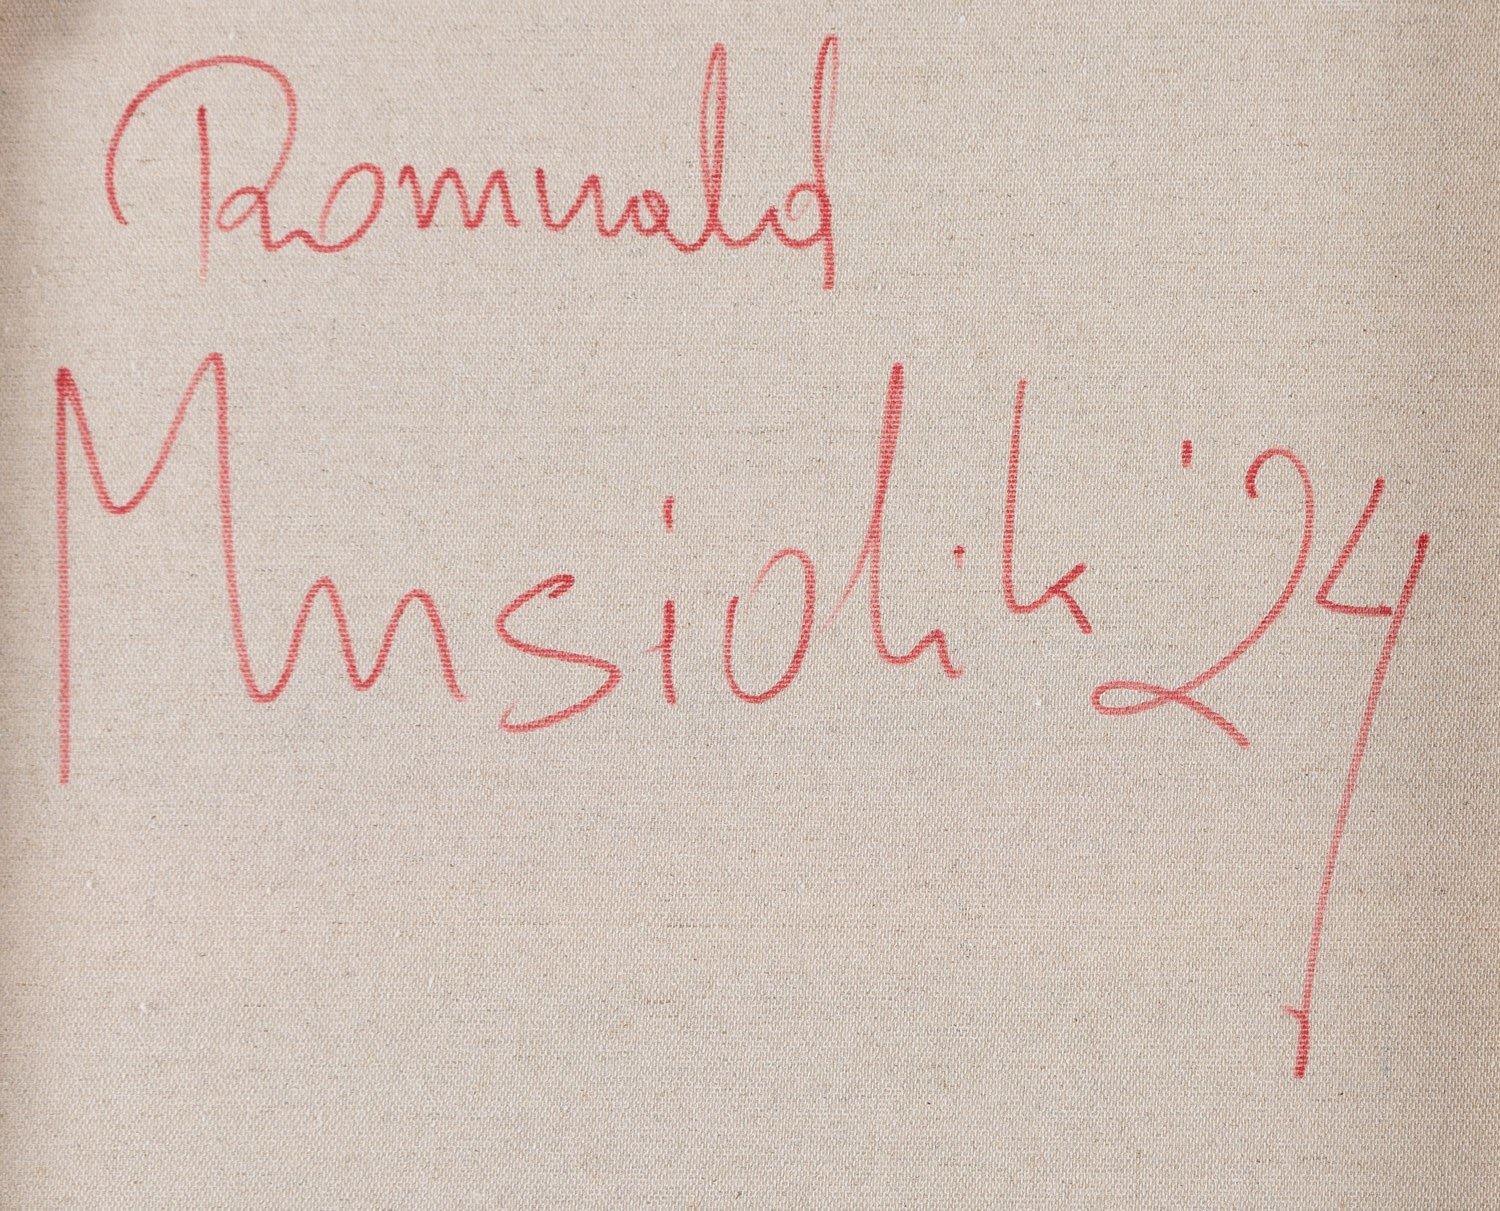 Romuald
Musiolik '24